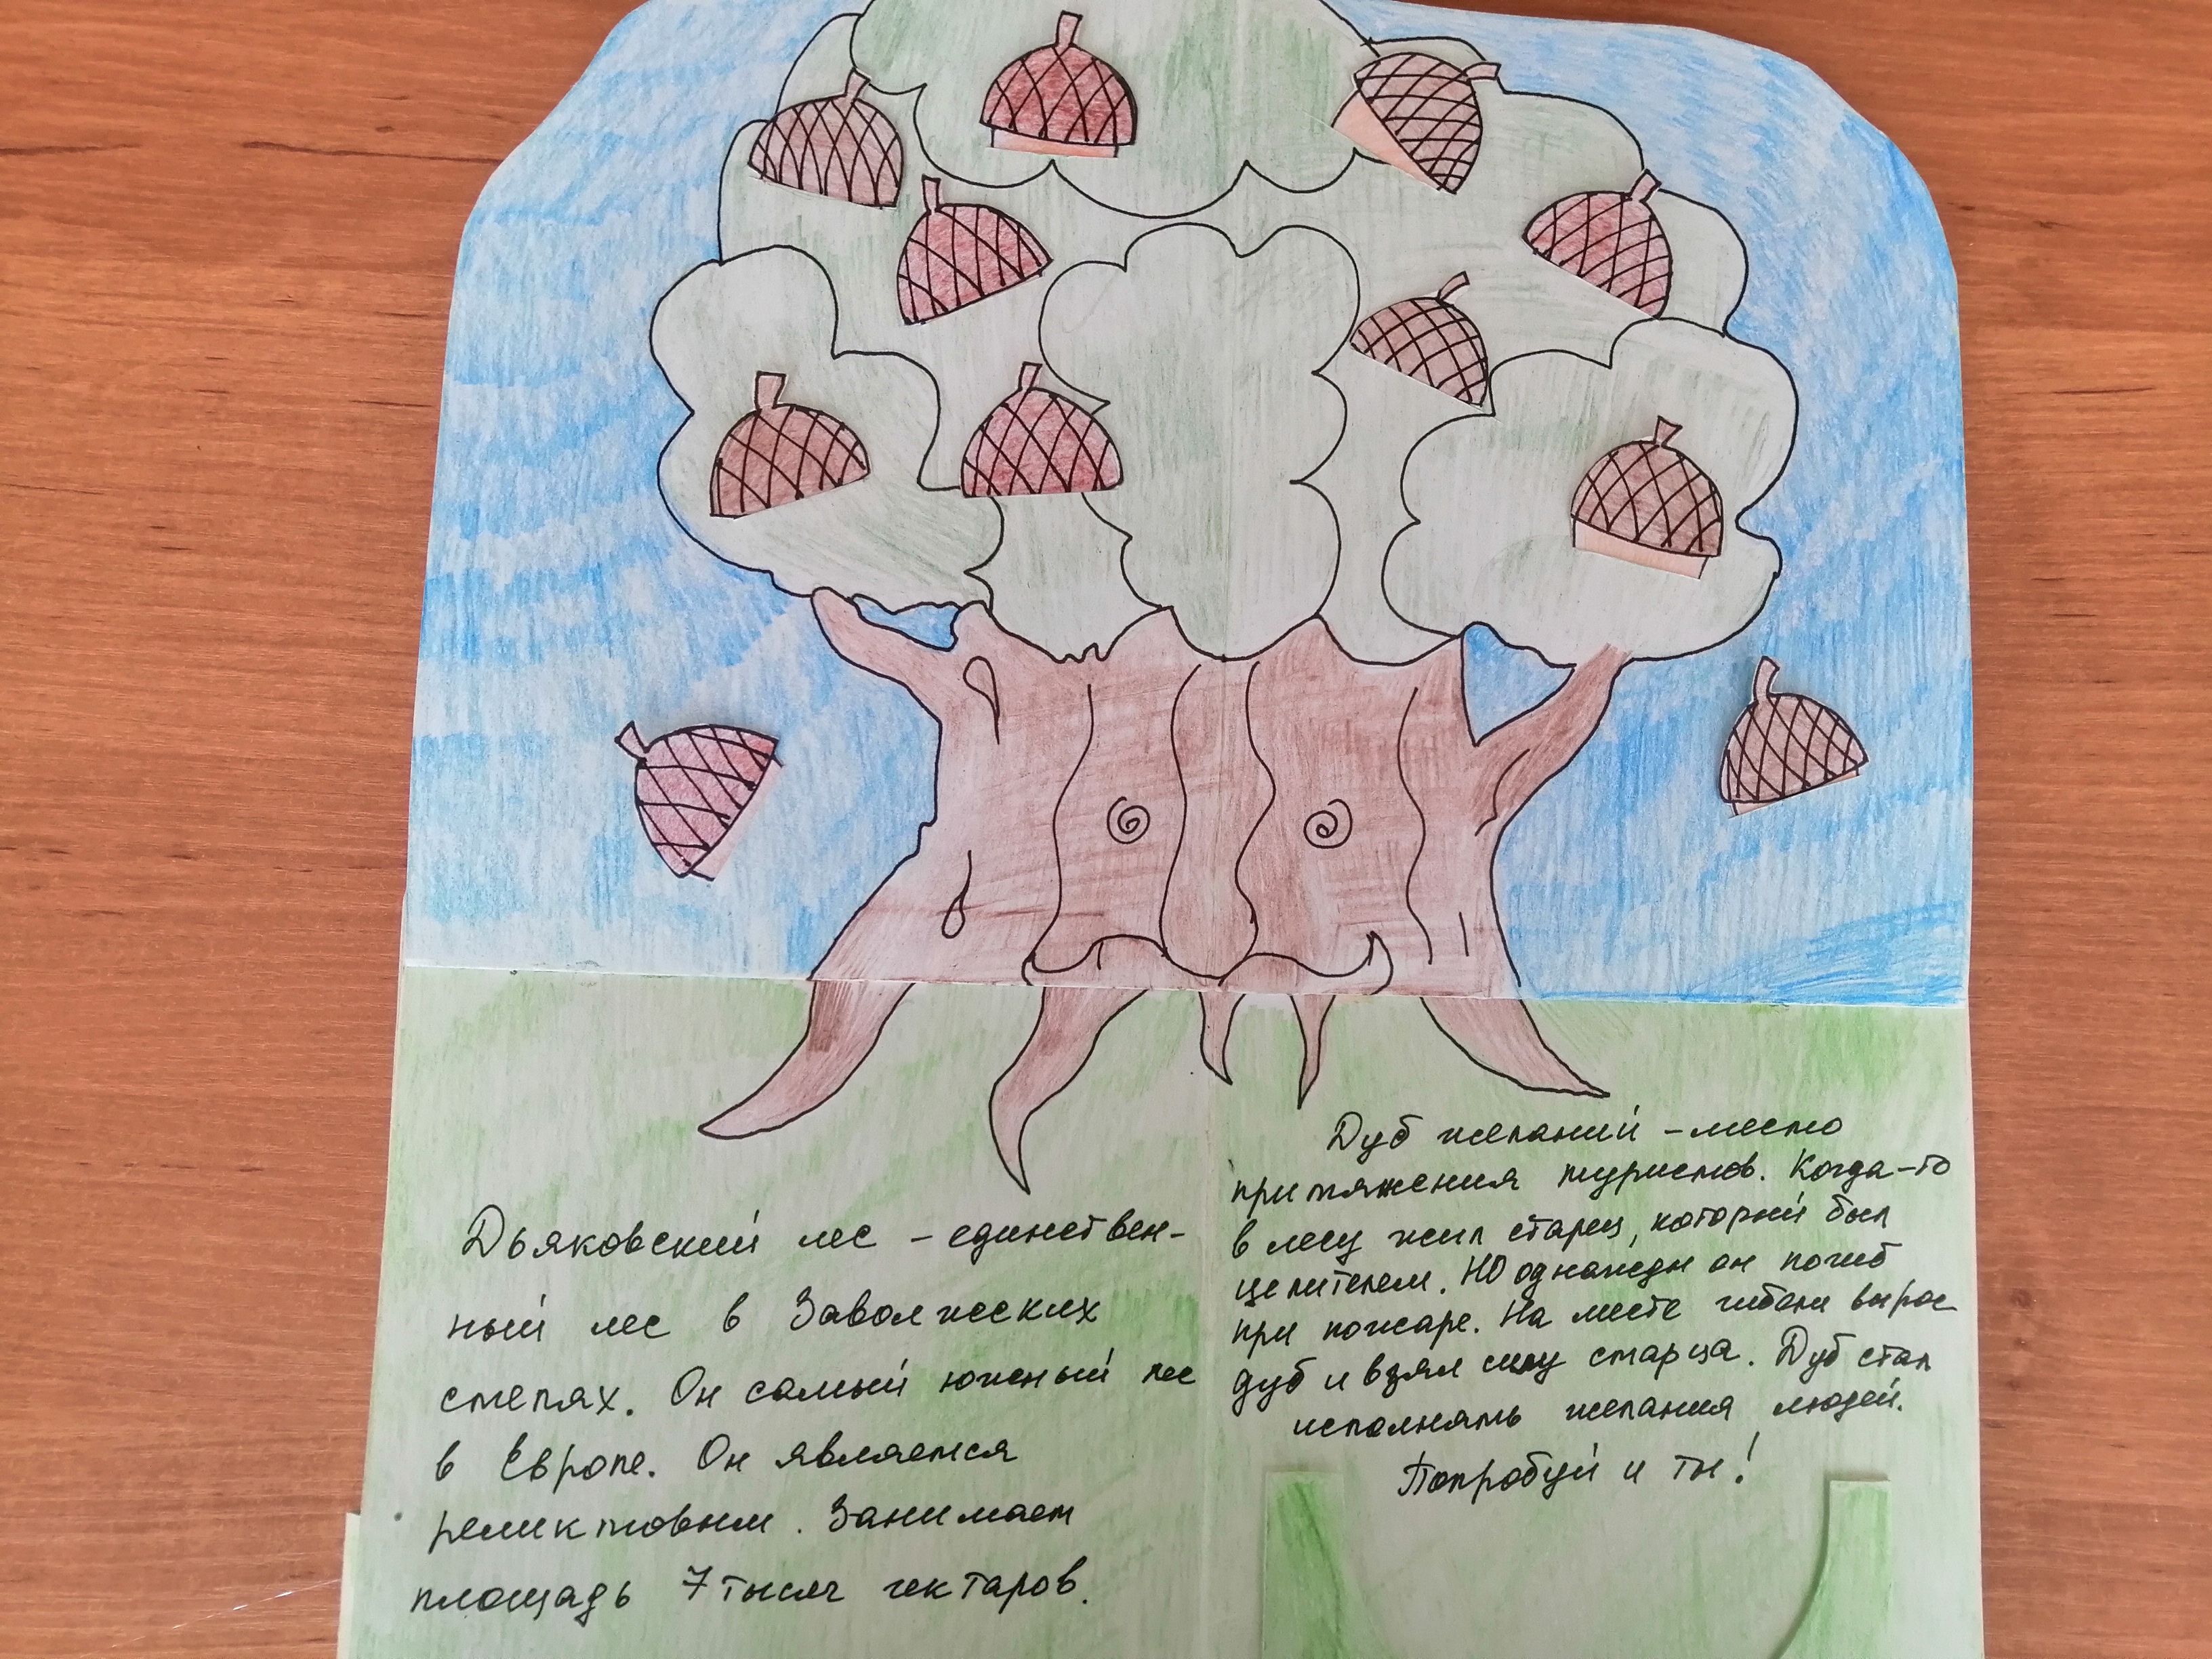 Дьяковский лес - единствен-
ный лес в Заволжских
степях. Он самый южный лес
в Европе. Он является
реликтовым. Занимает
площадь 7 тысяч гектаров.
Дуб желаний - место
притяжения туристов. Когда-то
в лесу жил старец, который был
целителем. Но однажды он погиб
при пожаре. На месте гибели вырос
дуб и взял силу старца. Дуб стал
исполнять желания людей.
Попробуй и ты!